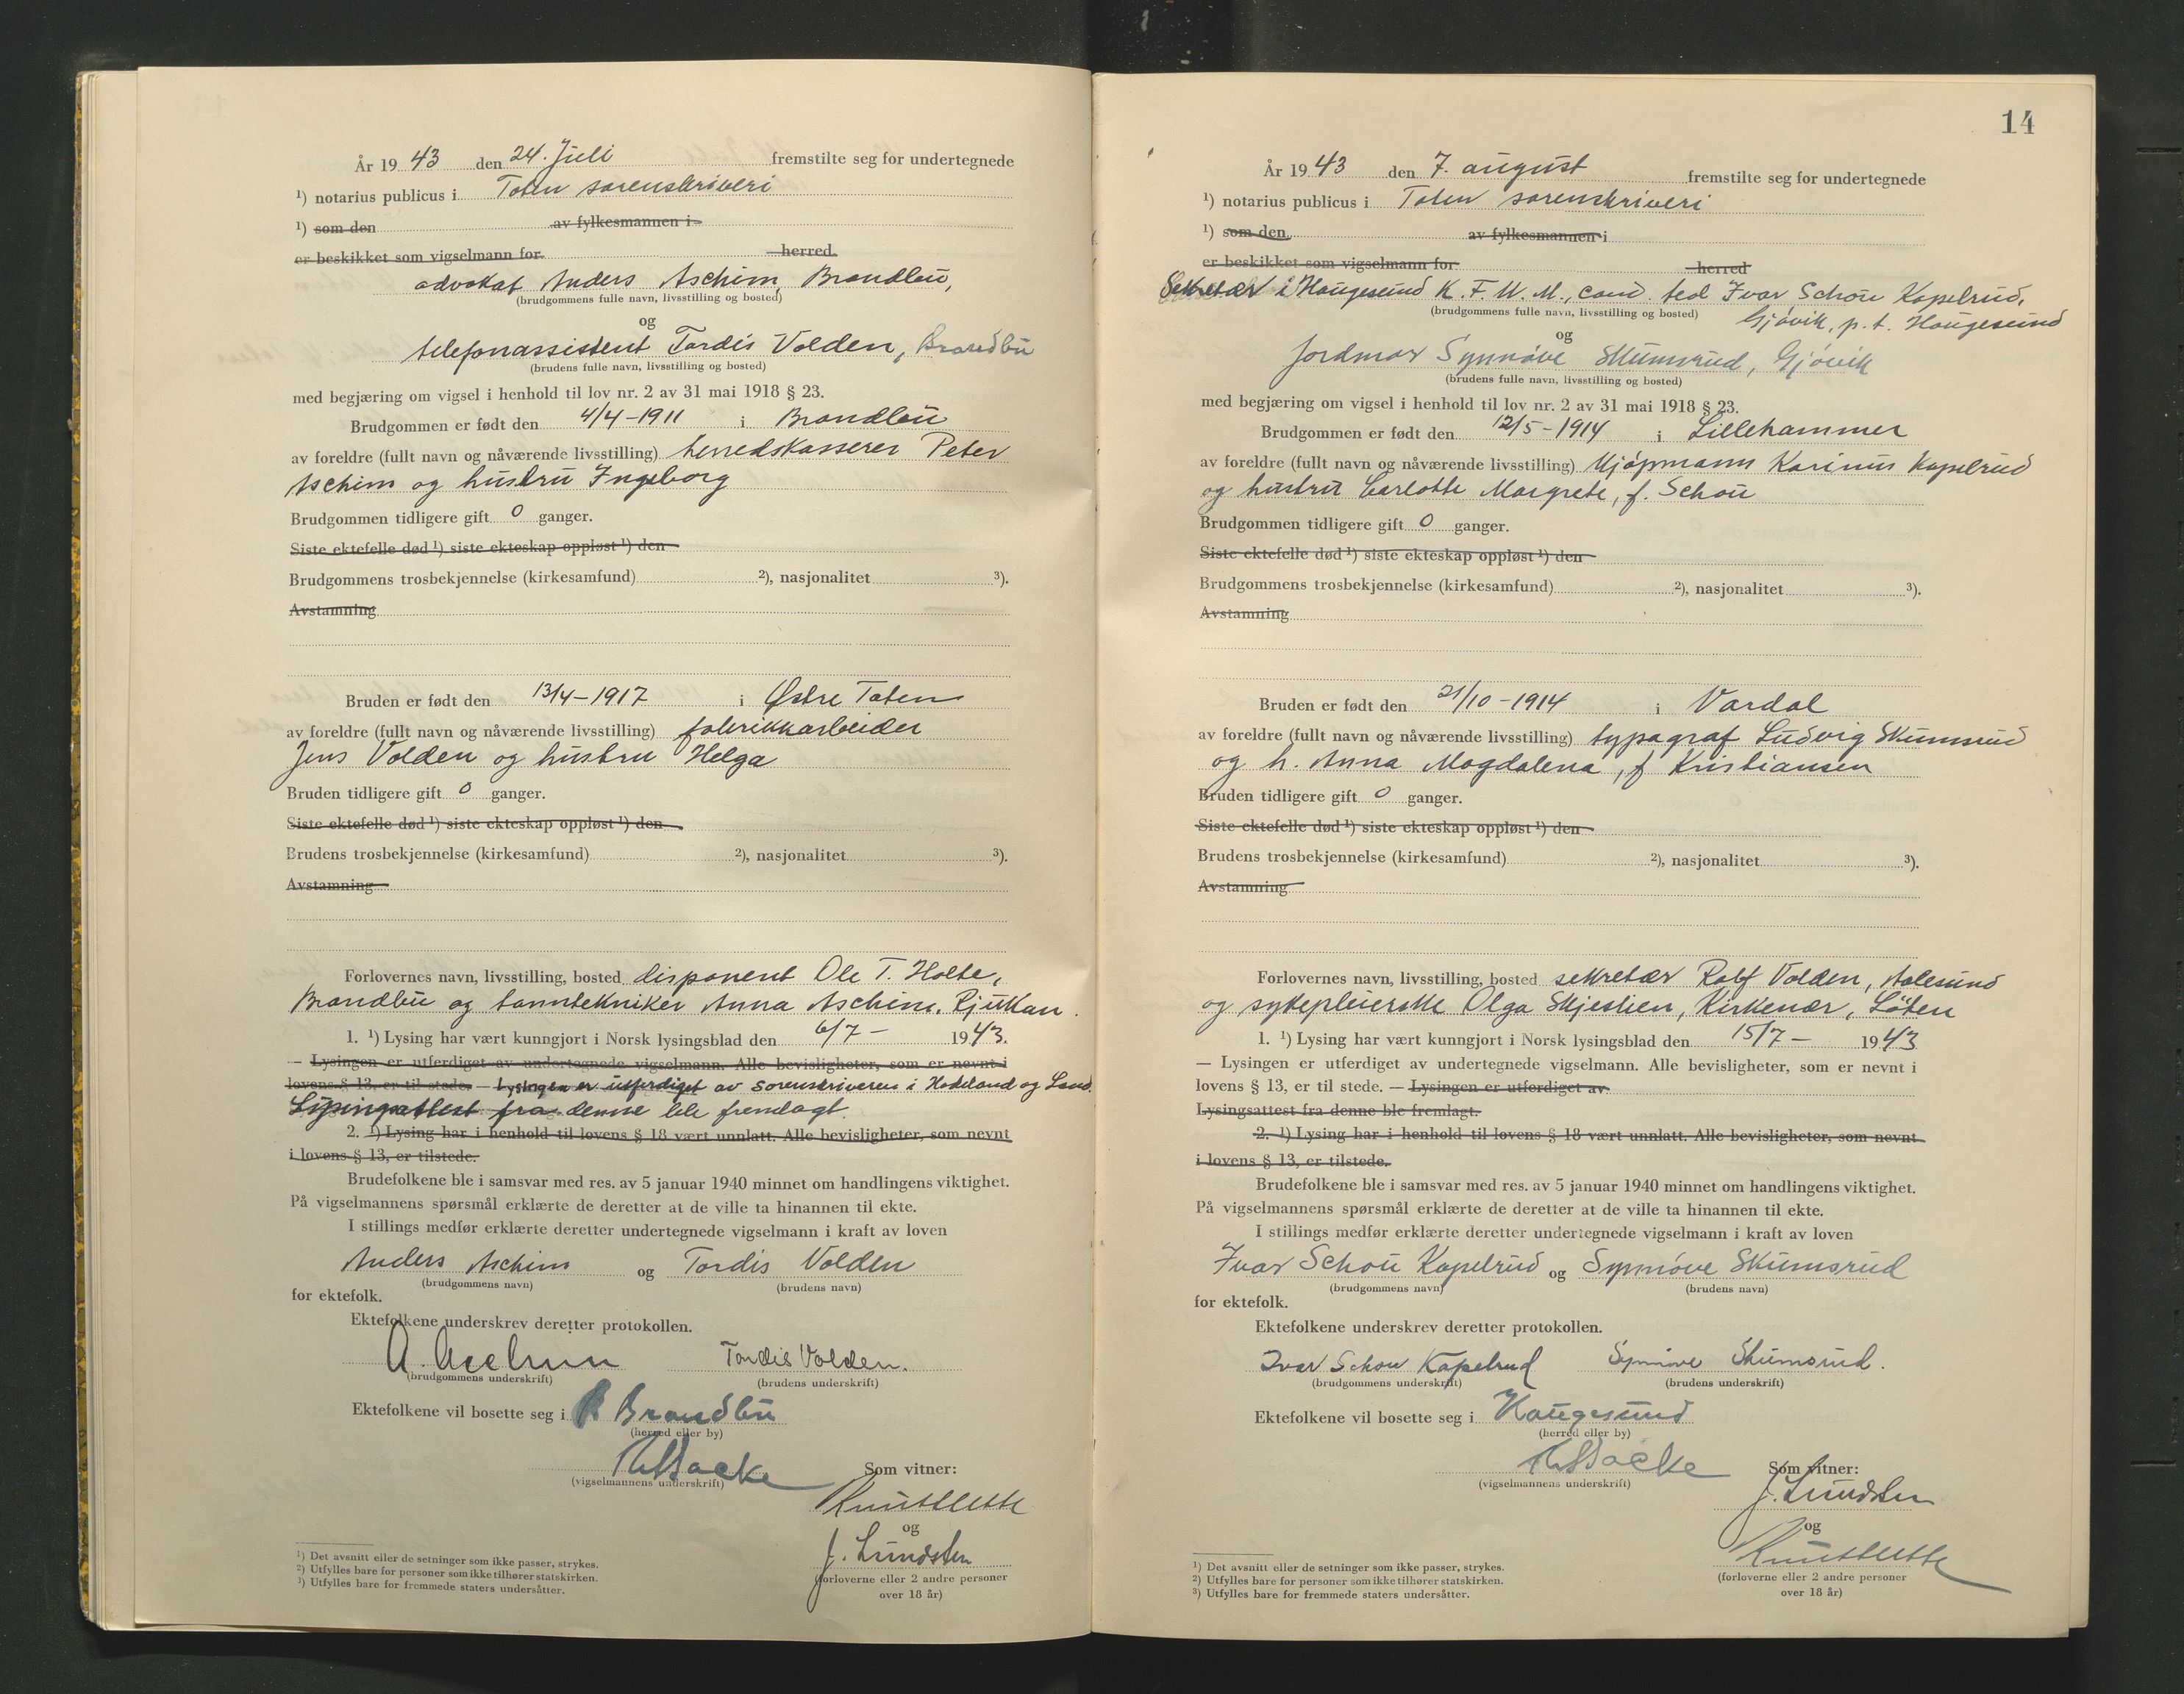 År 19 43 den 24. Juli fremstilte seg for undertegnede
¹) notarius publicus i Toten sorenskriveri
¹) som den av fylkesmannen i
er beskikket som vigselmann for herred.
advokat Anders Aschim, Brandbu,
(brudgommens fulle navn, livsstilling og bosted)
og
telefonassistent Tordis Volden, Brandbu
(brudens fulle navn, livsstilling og bosted)
med begjæring om vigsel i henhold til lov nr. 2 av 31 mai 1918 § 23.
Brudgommen er født den 4/4-1911 i Brandbu
av foreldre (fullt navn og nåværende livsstilling) herredskasserer Peter
Aschim og hustru Ingeborg
Brudgommen tidligere gift 0 ganger.
Siste ektefelle død ¹) siste ekteskap oppløst ¹) den
Brudgommens trosbekjennelse (kirkesamfund) ²), nasjonalitet ³).
Avstamning
Bruden er født den 13/4-1917 i Østre Toten
av foreldre (fullt navn og nåværende livsstilling) fabrikkarbeider
Jens Volden og hustru Helga
Bruden tidligere gift 0 ganger.
Siste ektefelle død ¹) siste ekteskap oppløst ¹) den
Brudens trosbekjennelse (kirkesamfund) ²), nasjonalitet ³).
Avstamning
Forlovernes navn, livsstilling, bosted disponent Ole T. Holte,
Brandbu og tanntekniker Anna Aschim, Rjukan.
1. ¹) Lysing har vært kunngjort i Norsk lysingsblad den 6/7 - 1943.
— Lysingen er utferdiget av undertegnede vigselmann. Alle bevisligheter, som er nevnt i
lovens § 13, er til stede. — Lysingen er utferdiget av sorenskriveren i Hadeland og Land.
Lysingsattest fra denne ble fremlagt.
2. ¹) Lysing har i henhold til lovens § 18 vært unnlatt. Alle bevisligheter, som nevnt
i lovens § 13, er tilstede.
Brudefolkene ble i samsvar med res. av 5 januar 1940 minnet om handlingens viktighet.
På vigselmannens spørsmål erklærte de deretter at de ville ta hinannen til ekte.
I stillings medfør erklærte deretter undertegnede vigselmann i kraft av loven
Anders Aschim og Tordis Volden
(brudgommens navn) (brudens navn)
for ektefolk.
Ektefolkene underskrev deretter protokollen.
A. Aschim Tordis Volden.
(brudgommens underskrift) (brudens underskrift)
Ektefolkene vil bosette seg i Brandbu
(herred eller by)
Som vitner:
(vigselmannens underskrift)
og
J. Lundsten
(forloverne eller 2 andre personer
over 18 år)
¹) Det avsnitt eller de setninger som ikke passer, strykes.
²) Utfylles bare for personer som ikke tilhører statskirken.
³) Utfylles bare for fremmede staters undersåtter.
14
År 19 43 den 7. august fremstilte seg for undertegnede
¹) notarius publicus i Toten sorenskriveri
¹) som den av fylkesmannen i
er beskikket som vigselmann for herred
Sekretær i Haugesund K.F.U.M., cand. teol Ivar Schou Kapelrud,
Gjøvik, p.t. Haugesund
(brudgommens fulle navn, livsstilling og bosted)
og
Jordmor Synnøve Skumsrud, Gjøvik
(brudens fulle navn, livsstilling og bosted)
med begjæring om vigsel i henhold til lov nr. 2 av 31 mai 1918 § 23.
Brudgommen er født den 12/5-1914 i Lillehammer
av foreldre (fullt navn og nåværende livsstilling) Kjøpmann Karinus Kapelrud
og hustru Carlotte Margrete, f. Schou
Brudgommen tidligere gift 0 ganger.
Siste ektefelle død ¹) siste ekteskap oppløst ¹) den
Brudgommens trosbekjennelse (kirkesamfund) ²), nasjonalitet ³).
Avstamning
Bruden er født den 21/10-1914 i Vardal
av foreldre (fullt navn og nåværende livsstilling) typograf Ludvig Skumsrud
og h. Anna Magdalena, f Kristiansen
Bruden tidligere gift 0 ganger.
Siste ektefelle død ¹) siste ekteskap oppløst ¹) den
Brudens trosbekjennelse (kirkesamfund) ²), nasjonalitet ³).
Avstamning
Forlovernes navn, livsstilling, bosted sekretær Rolf Volden, Aalesund
og sykepleierske Olga Skjeslien, Kirkenær, Löten
1. ¹) Lysing har vært kunngjort i Norsk lysingsblad den 15/7 - 1943
— Lysingen er utferdiget av undertegnede vigselmann. Alle bevisligheter, som er nevnt i
lovens § 13, er til stede. — Lysingen er utferdiget av
Lysingsattest fra denne ble fremlagt.
2. ¹) Lysing har i henhold til lovens § 18 vært unnlatt. Alle bevisligheter, som nevnt
i lovens § 13, er tilstede.
Brudefolkene ble i samsvar med res. av 5 januar 1940 minnet om handlingens viktighet.
På vigselmannens spørsmål erklærte de deretter at de ville ta hinannen til ekte.
I stillings medfør erklærte deretter undertegnede vigselmann i kraft av loven
Ivar Schou Kapelrud og Synnøve Skumsrud
(brudgommens navn) (brudens navn)
for ektefolk.
Ektefolkene underskrev deretter protokollen.
Ivar Schou Kapelrud Synnøve Skumsrud.
(brudgommens underskrift) (brudens underskrift)
Ektefolkene vil bosette seg i Haugesund
(herred eller by)
Som vitner:
(vigselmannens underskrift)
J. Lundsten
og
(forloverne eller 2 andre personer
over 18 år)
¹) Det avsnitt eller de setninger som ikke passer, strykes.
²) Utfylles bare for personer som ikke tilhører statskirken.
³) Utfylles bare for fremmede staters undersåtter.